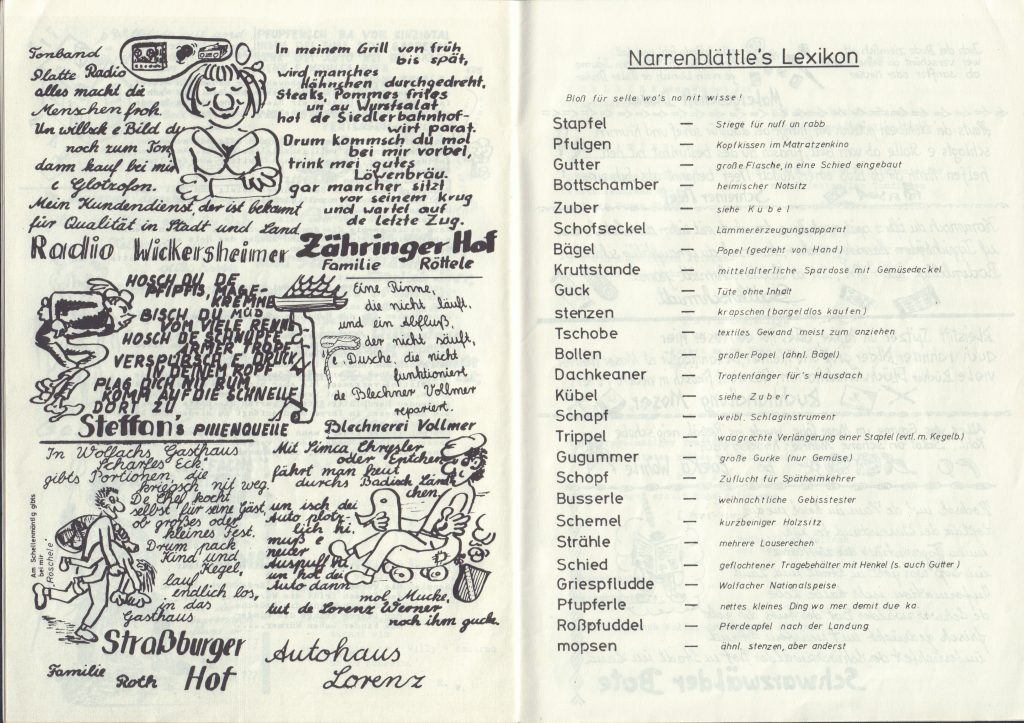 Tonband
Platte Radio
alles macht die
Menschen froh.
Un willsch e Bild du
noch zum Ton
dann kauf bei mir
e Glotrofon.
Mein Kundendienst, der ist bekannt
für Qualität in Stadt und Land
Radio Wickersheimer
In meinem Grill von früh
bis spät,
wird manches
Hähnchen durchgedreht,
Steaks, Pommes frites
un au Wurstsalat
hot de Siedlerbahnhof-
wirt parat.
Drum kommsch du mol
bei mir vorbei,
trink mei gutes
Löwenbräu.
gar mancher sitzt
vor seinem krug
und wartet auf
de letzte Zug.
Zähringer Hof
Familie Röttele
HOSCH DU DE
PFIPFIS, MAGE-
KREMME
BISCH DU MÜD
VOM VIELE RENNE
HOSCH DE SCHNUPFE
VERSPÜRSCH E DRUCK
IN DEINEM KOPF
PLAG DICH NIT RUM
KOMM AUF DIE SCHNELLE
DORT ZU,
Steffan's PILLENQUELLE
Eine Rinne,
die nicht läuft,
und ein Abfluß,
der nicht säuft,
e Dusche, die nicht
funktioniert
de Blechner Vollmer
repariert.
Blechnerei Vollmer
In Wollachs Gasthaus
"Scharfes Eck,"
gibts Portionen, die
kriegsch nit weg.
De Chef kocht
selbst für seine Gäst,
ob großes oder
kleines Fest.
Drum pack
Kind und
Kegel,
lauf
endlich los,
in das
Gasthaus
Am Schellenmöntig gibts
bei mir
"Röschele"
Straßburger
Hof
Familie
Roth
Mit Simca Chrysler
oder Entchen
fährt man heut
durchs Badisch Länd-
chen.
un isch dei
Auto plötz-
lich hi,
muß e
neuer
Auspuff ni.
un hot di
Auto dann
mol Mucke,
tut de Lorenz Werner
noch ihm gucke.
Autohaus
Lorenz
Narrenblättle's Lexikon
Bloß für selle wo's no nit wisse!
Stapfel — Stiege für nuff un rabb
Pfulgen — Kopfkissen im Matratzenkino
Gutter — große Flasche, in eine Schied eingebaut
Bottschamber — heimischer Notsitz
Zuber — siehe Kübel
Schofseckel — Lämmererzeugungsapparat
Bägel — Popel (gedreht von Hand)
Kruttstande — mittelalterliche Spardose mit Gemüsedeckel
Guck — Tüte ohne Inhalt
stenzen — krapschen (bargeldlos kaufen)
Tschobe — textiles Gewand meist zum anziehen
Bollen — großer Popel (ähnl. Bägel)
Dachkeaner — Tropfenfänger für's Hausdach
Kübel — siehe Zuber
Schapf — weibl. Schlaginstrument
Trippel — waagrechte Verlängerung einer Stapfel (evtl. m. Kegelb.)
Gugummer — große Gurke (nur Gemüse)
Schopf — Zuflucht für Spätheimkehrer
Busserle — weihnachtliche Gebisstester
Schemel — kurzbeiniger Holzsitz
Strähle — mehrere Lauserechen
Schied — geflochtener Tragebehälter mit Henkel (s. auch Gutter)
Griespfludde — Wolfacher Nationalspeise
Pfupferle — nettes kleines Ding wo mer demit due ka
Roßpfuddel — Pferdeapfel nach der Landung
mopsen — ähnl. stenzen, aber anderst